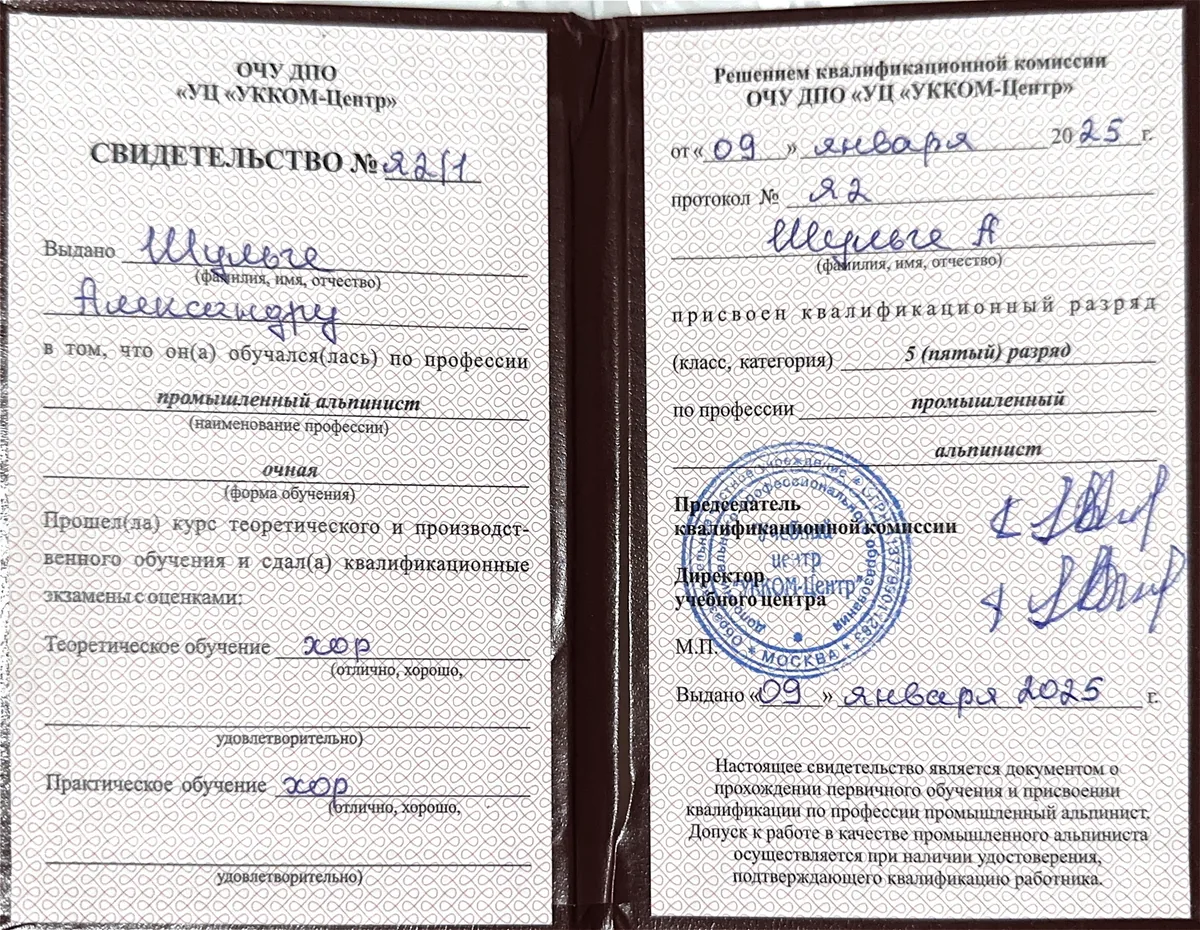 ОЧУ ДПО
«УЦ «УККОМ-Центр»
СВИДЕТЕЛЬСТВО № Я2/1
Выдано Шульге
(фамилия, имя, отчество)
Александру
в том, что он(а) обучался(лась) по профессии
промышленный альпинист
(наименование профессии)
очная
(форма обучения)
Прошел(ла) курс теоретического и производст-
венного обучения и сдал(а) квалификационные
экзамены с оценками:
Теоретическое обучение хор
(отлично, хорошо,
удовлетворительно)
Практическое обучение хор
(отлично, хорошо,
удовлетворительно)
Решением квалификационной комиссии
ОЧУ ДПО «УЦ «УККОМ-Центр»
от «09» января 2025 г.
протокол № Я2
Шульге А
(фамилия, имя, отчество)
присвоен квалификационный разряд
(класс, категория) 5 (пятый) разряд
по профессии промышленный
альпинист
Председатель
квалификационной комиссии
Директор
учебного центра
М.П.
Учебный
центр
"УККОМ-Центр"
дополнительного профессионального образования
МОСКВА
Выдано «09» января 2025 г.
Настоящее свидетельство является документом о
прохождении первичного обучения и присвоении
квалификации по профессии промышленный альпинист.
Допуск к работе в качестве промышленного альпиниста
осуществляется при наличии удостоверения,
подтверждающего квалификацию работника.